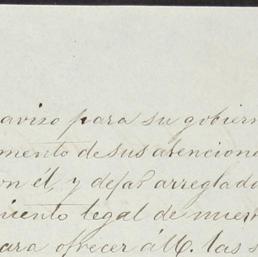 avizo para su gobiern
mento de sus atencione
on él, y dejar arreglado
iento legal de nuest
ara ofrecer á V. las s